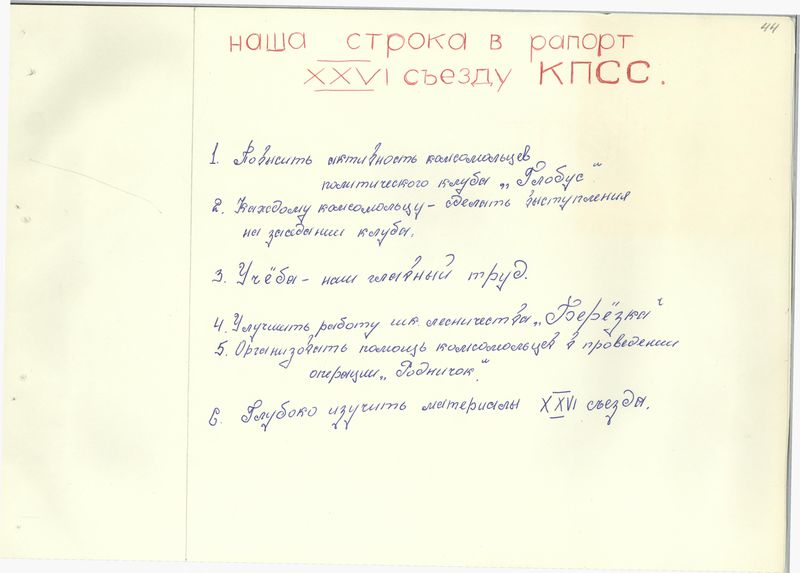 44
наша строка в рапорт
XXVI съезду КПСС.
1. Повысить активность комсомольцев
политического клуба „Глобус".
2. Каждому комсомольцу - сделать выступления
на заседании клуба.
3. Учёба - наш главный труд.
4. Улучшить работу шк. лесничества „Берёзка"
5. Организовать помощь комсомольцев в проведении
операции „Родничок".
6. Глубоко изучить материалы XXVI съезда.